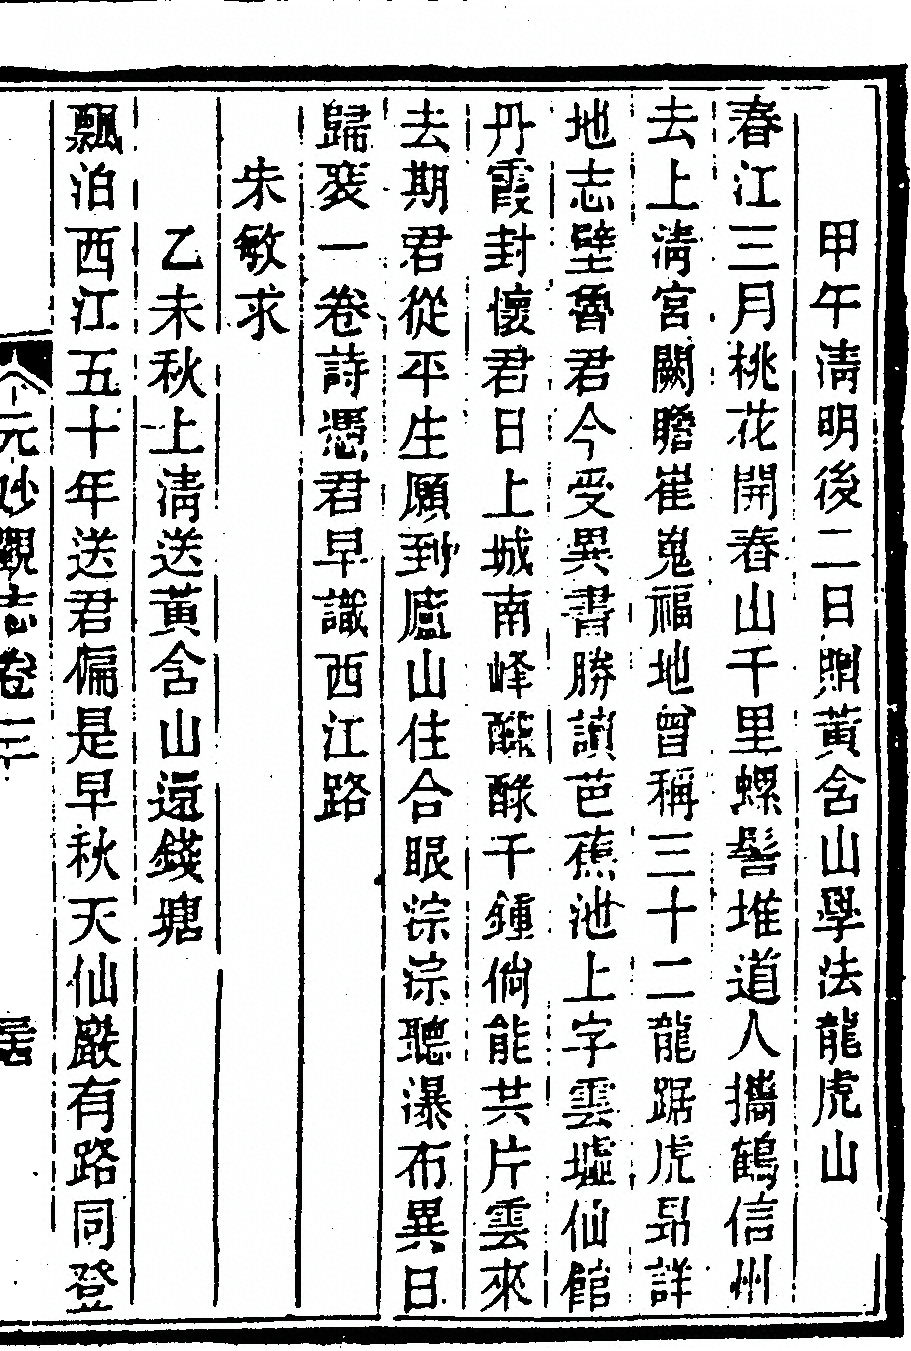 甲午淸明後二日贈黃含山學法龍虎山
春江三月桃花開春山千里螺髻堆道人攜鶴信州
去上淸宮闕瞻崔嵬福地曾稱三十二龍踞虎昻詳
地志壁魯君今受異書勝讀芭蕉池上字雲墟仙館
丹霞封懷君日上城南峰醽醁千鍾倘能共片雲來
去期君從平生願到廬山住合眼淙淙聽瀑布異日
歸裝一卷詩憑君早識西江路
朱敏求
乙未秋上淸送黃含山還錢塘
飄泊西江五十年送君偏是早秋天仙巖有路同登
元妙觀志卷三
居